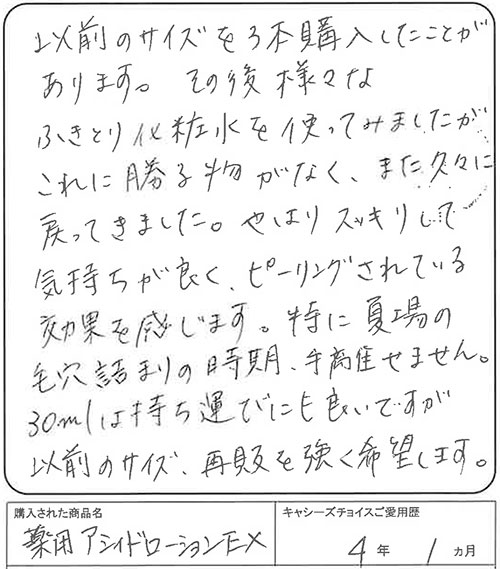 以前のサイズを3本購入したことが
あります。その後様々な
ふきとり化粧水を使ってみましたが
これに勝る物がなく、また久々に
戻ってきました。やはりスッキリして
気持ちが良く、ピーリングされている
効果を感じます。特に夏場の
毛穴詰まりの時期、手離せません。
30mlは持ち運びにも良いですが
以前のサイズ、再販を強く希望します。
購入された商品名
薬用アシィドローションEX
キャシーズチョイスご愛用歴
4年1ヵ月